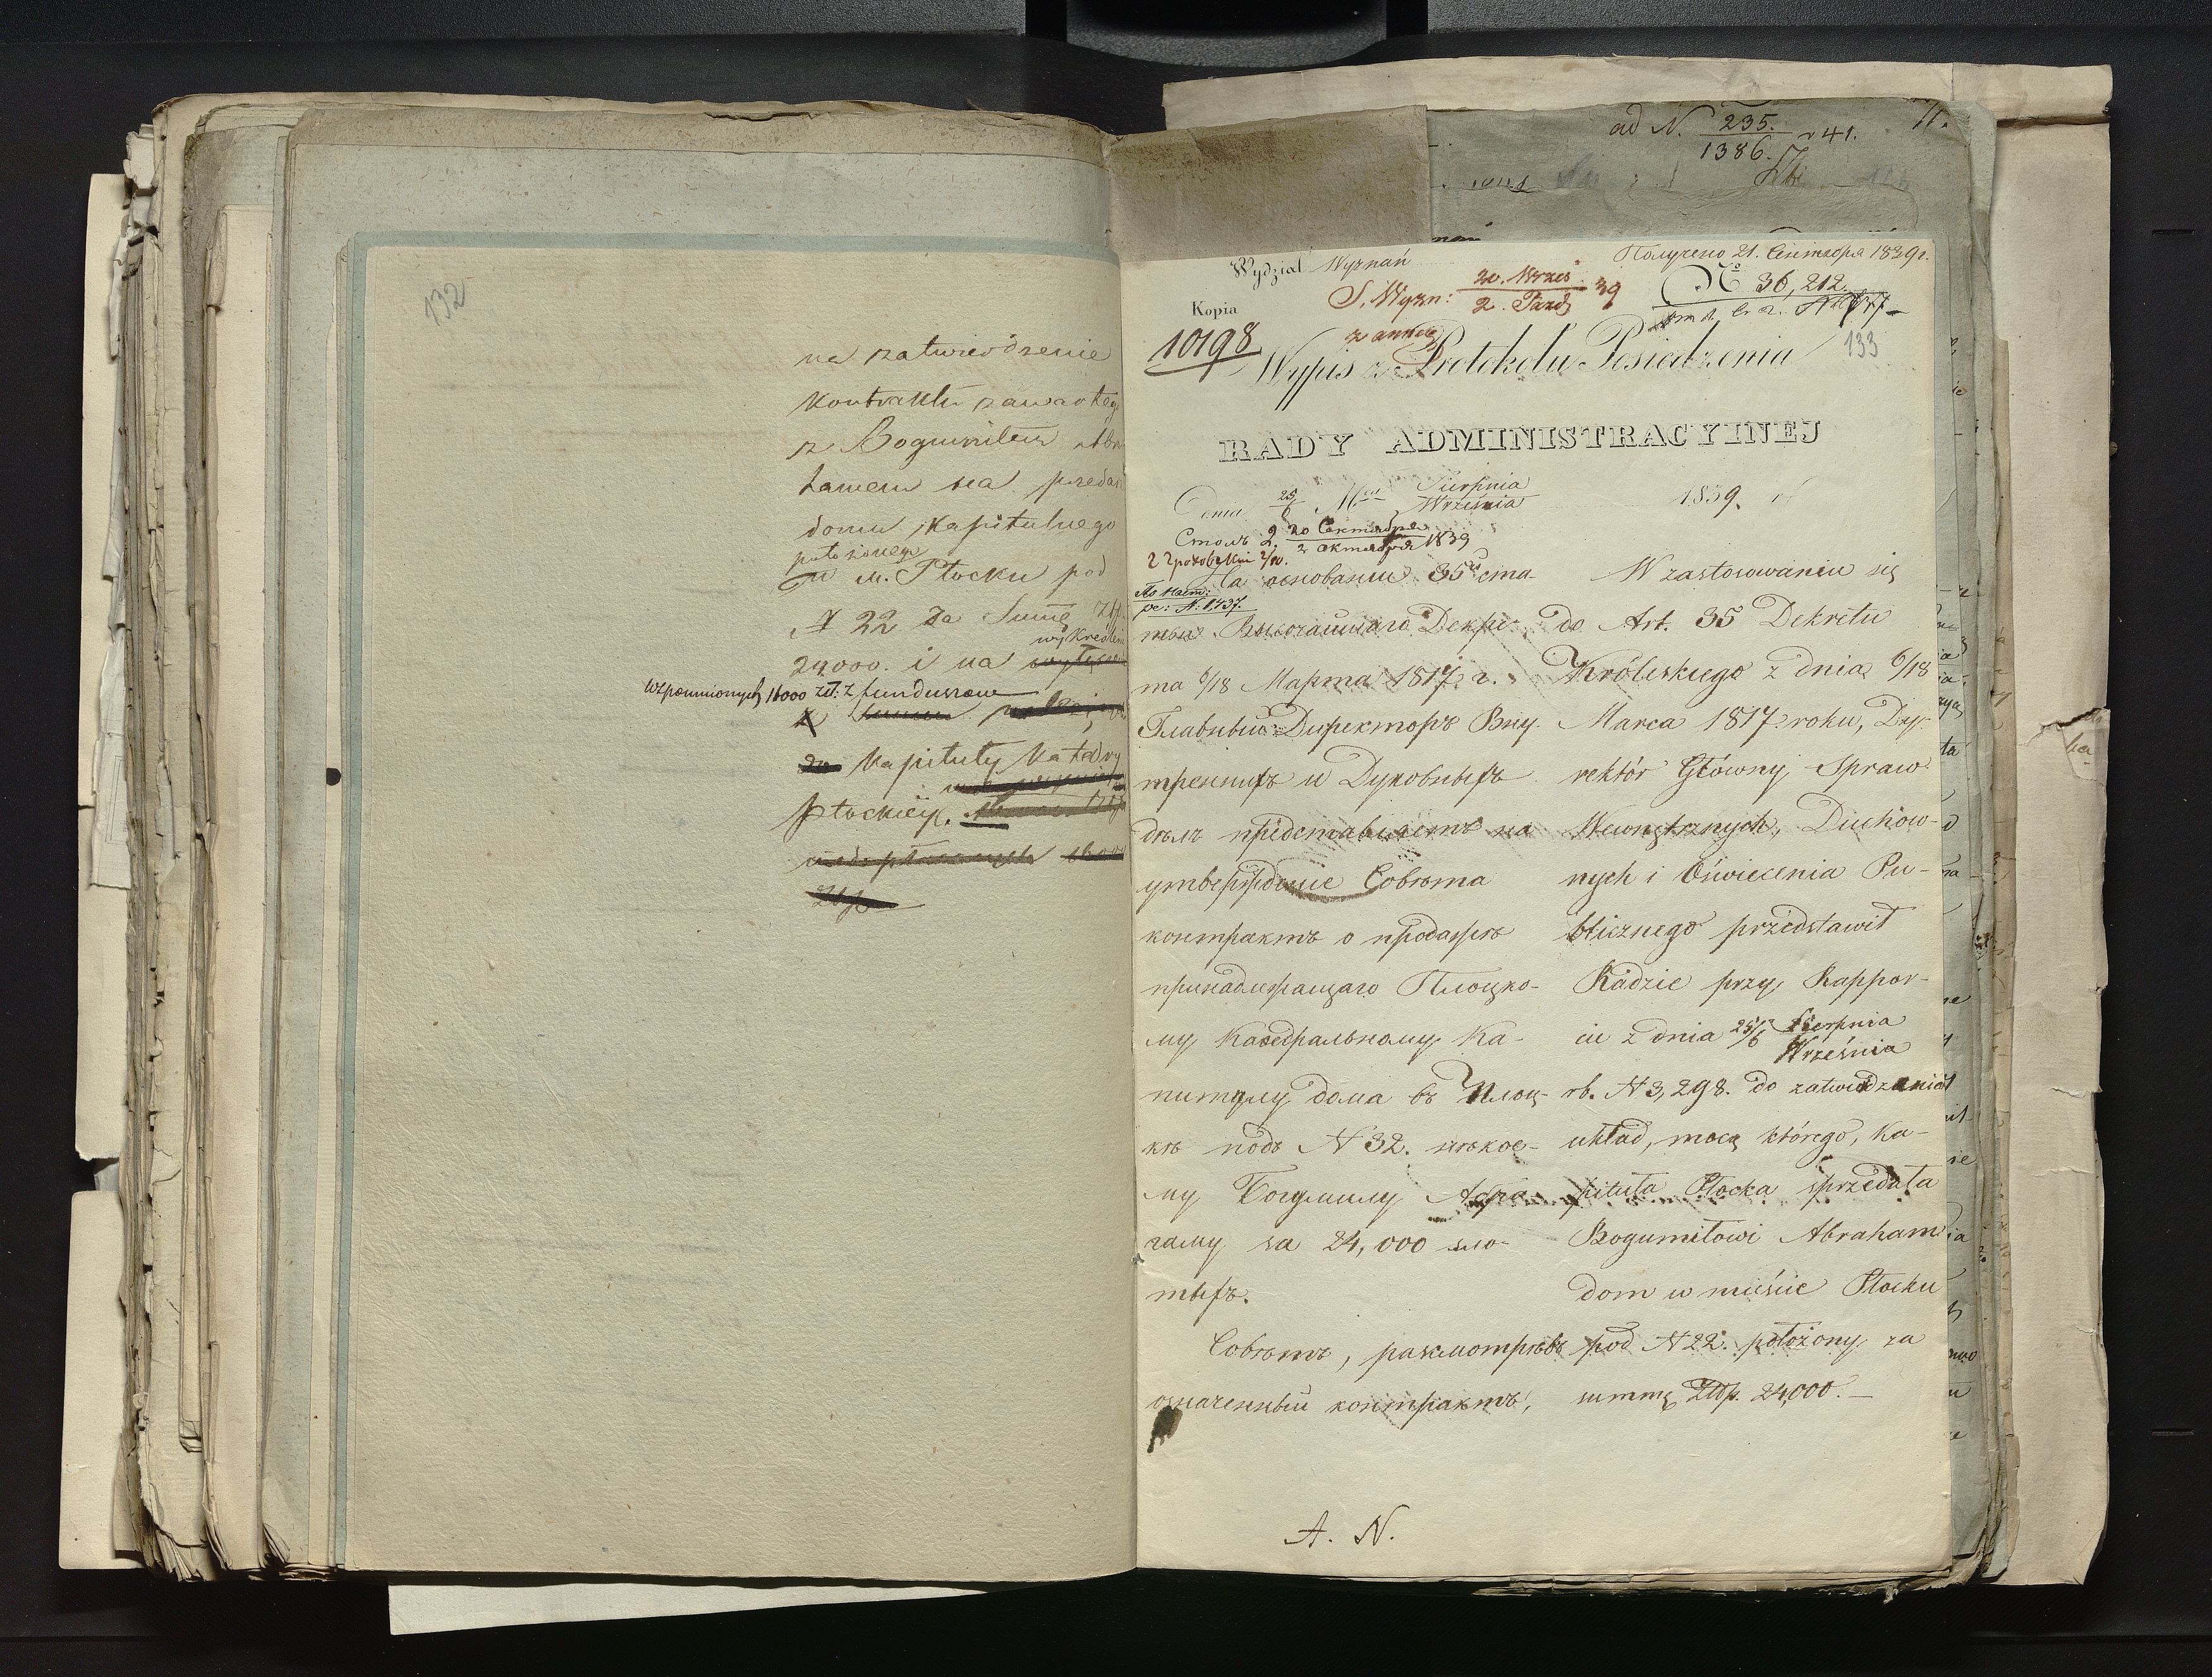 132
na zatwierdzenie
Kontraktu zawartego
z Bogumiłem Abra
hamem na przedaż
domu Kapitulnego
położonego
w m. Płocku pod
N 22 za Summę Złp.
24000. i na
wykreślen
wzpomnionych 16000 zł: z funduszow
Kapituły Katedry
Płockiej.
Złp
ad N. 235./1386. r 41.
11.
Wydział Wyznań
Получено 21. Сентября 1839 г.
S. Wyzn: 20. Wrześ/2. Paźdz 39
№ 36,212.
Kopia
z annex
10198
133
Wypis z Protokołu Posiedzenia
RADY ADMINISTRACYINEJ
Dnia 25/6 M-ca Sierpnia/Września 1839. r.
Столъ 2. 20 Сентября/2 Октября 1839
По Наст:
ре: N. 1,437.
На основаніи 35й ста-
тьи Высочайшаго Декре-
та 6/18 Марта 1817 г.
Главный Директоръ Вну-
треннихъ и Духовныхъ
дѣлъ представляетъ на
утвержденіе Совѣта
контрактъ о продажѣ
принадлежащаго Плоцко-
му Каѳедральному Ка-
питулу дома въ Плоц-
кѣ подъ N 32. нѣкое-
му Богумилу Абра-
гаму за 24,000 зло-
тыхъ.
Совѣтъ, разсмотрѣвъ
означенный контрактъ,
W zastosowaniu się
do Art. 35 Dekretu
Królewskiego z dnia 6/18
Marca 1817 roku, Dyr-
rektór Główny Spraw
Wewnętrznych, Duchow-
nych i Oświecenia Pu-
blicznego przedstawił
Radzie przy Rappor-
cie z dnia 25/6 Sierpnia/Września
rb. N 3,298. do zatwierdzenia
układ, mocą którego, Ka-
pituła Płocka sprzedała
Bogumiłowi Abraham
dom w mieście Płocku
pod N 22. położony za
summę Złp. 24,000.—
A. N.